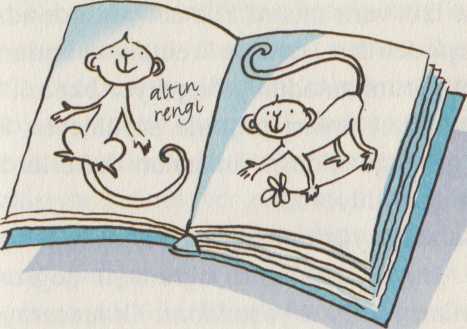 altın
rengi